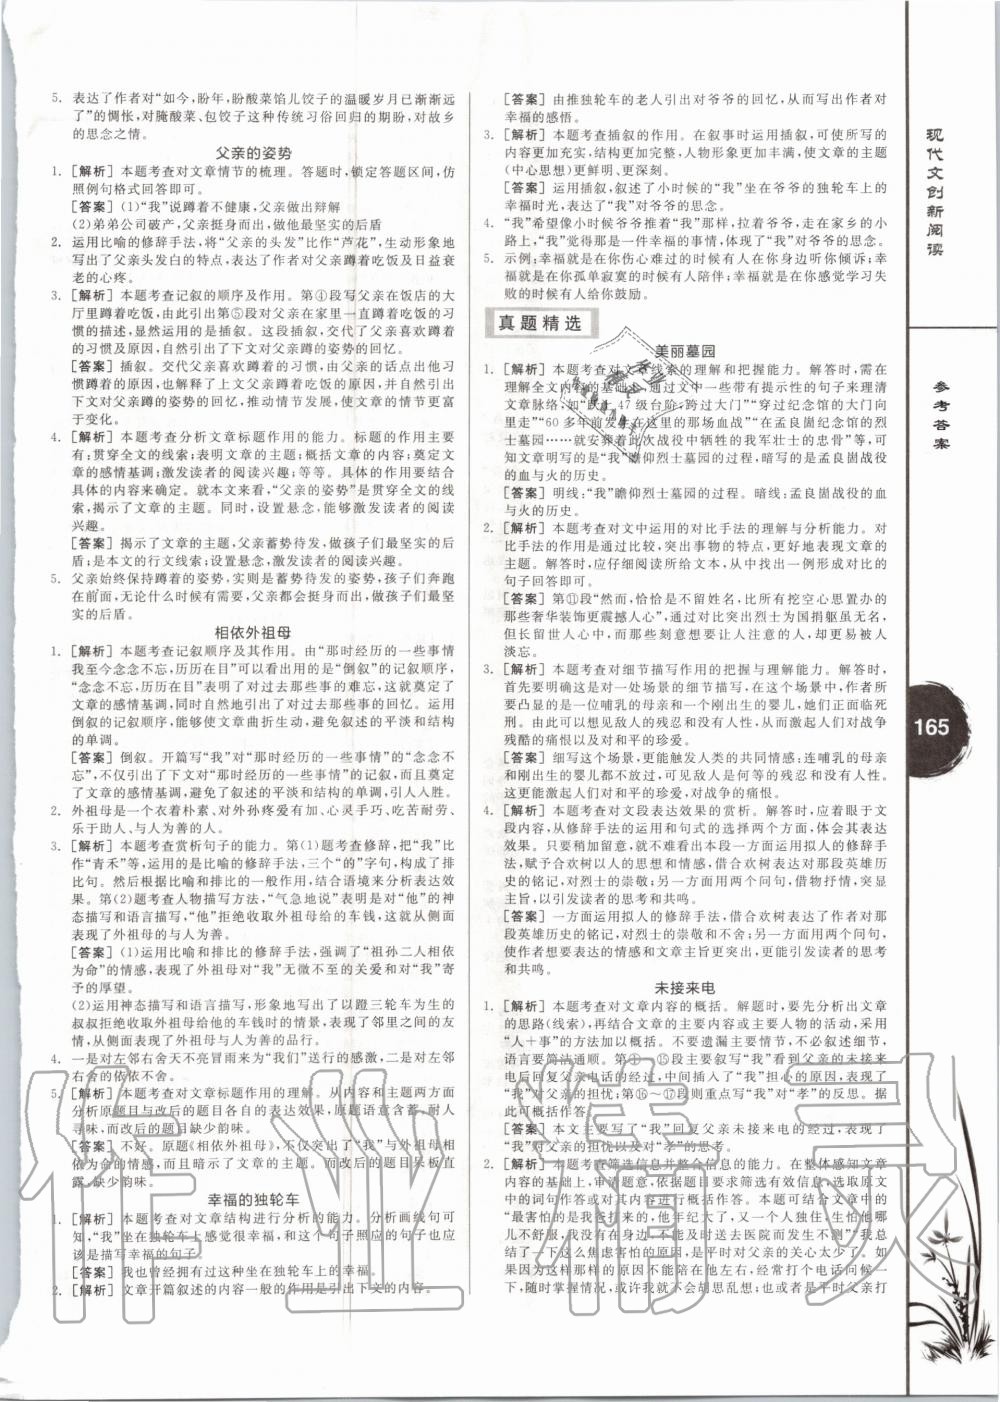 5. 表达了作者对“如今,盼年,盼酸菜馅儿饺子的温暖岁月已渐渐远
了”的惆怅,对腌酸菜、包饺子这种传统习俗回归的期盼,对故乡
的思念之情。
父亲的姿势
1. [解析] 本题考查对文章情节的梳理。答题时,锁定答题区间,仿
照例句格式回答即可。
[答案] (1)“我”说蹲着不健康,父亲做出辩解
(2)弟弟公司破产,父亲挺身而出,做他最坚实的后盾
2. 运用比喻的修辞手法,将“父亲的头发”比作“芦花”,生动形象地
写出了父亲头发白的特点,表达了作者对父亲蹲着吃饭及日益衰
老的心疼。
3. [解析] 本题考查记叙的顺序及作用。第④段写父亲在饭店的大
厅里蹲着吃饭,由此引出第⑤段对父亲在家里一直蹲着吃饭的习
惯的描述,显然运用的是插叙。这样写,交代了父亲喜欢蹲着吃饭
的习惯及原因,自然引出了下文对父亲蹲着的姿势的回忆。
[答案] 插叙。交代父亲喜欢蹲着吃饭的习惯,由父亲的话点出他习惯
蹲着吃饭的原因,也解释了上文中父亲蹲着吃饭的举动,并自然引出
下文对父亲蹲着的姿势的回忆,推动情节发展,使文章的情节更富
于变化。
4. [解析] 本题考查分析文章标题作用的能力。标题的作用主要
有:贯穿全文的线索;表明文章的主题;概括文章的内容;奠定文
章的感情基调;激发读者的阅读兴趣;等等。具体的作用要结合
具体的内容来确定。就本文来看,“父亲的姿势”是贯穿全文的线
索,揭示了文章的主题。同时,设置悬念,能够激发读者的阅读
兴趣。
[答案] 揭示了文章的主题,父亲蓄势待发,做孩子们最坚实的后
盾;是本文的行文线索;设置悬念,激发读者的阅读兴趣。
5. 父亲始终保持蹲着的姿势,实则是蓄势待发的姿势,孩子们奔跑
在前面,无论什么时候有需要,父亲都会挺身而出,做孩子们最坚
实的后盾。
相依外祖母
1. [解析] 本题考查记叙顺序及其作用。由“那时经历的一些事情
我至今念念不忘,历历在目”可以看出用的是“倒叙”的记叙顺序,
“念念不忘,历历在目”表明了对过去那些事的难忘,这就奠定了
文章的感情基调,同时自然地引出了对过去那些事的回忆。运用
倒叙的记叙顺序,能够使文章曲折生动,避免叙述的平淡和结构
的单调。
[答案] 倒叙。开篇写“我”对“那时经历的一些事情”的“念念不
忘”,不仅引出了下文对“那时经历的一些事情”的记叙,而且奠定
了文章的感情基调,避免了叙述的平淡和结构的单调,引人入胜。
2. 外祖母是一个衣着朴素、对外孙疼爱有加、心灵手巧、吃苦耐劳、
乐于助人、与人为善的人。
3. [解析] 本题考查赏析句子的能力。第(1)题考查修辞,把“我”比
作“青禾”等,运用的是比喻的修辞手法,三个“的”字句,构成了排
比句。然后根据比喻、排比的作用,结合语境来分析具体的表达效
果。第(2)题考查人物描写方法,“气急地说”表明的是对“他”的神
态描写和语言描写,“他”拒绝收取外祖母给的车钱,这就从侧面
表现了外祖母的与人为善。
[答案] (1)运用比喻和排比的修辞手法,强调了“祖孙二人相依
为命”的情感,表现了外祖母对“我”无微不至的关爱和对“我”寄
予的厚望。
(2)运用神态描写和语言描写,形象地写出了以蹬三轮车为生的
叔叔拒绝收取外祖母给他的车钱时的情景,表现了邻里之间的友
情,从侧面表现了外祖母与人为善的品行。
4. 一是对左邻右舍天不亮冒雨来为“我们”送行的感激,二是对左邻
右舍的依依不舍。
5. [解析] 本题考查对文章标题作用的理解。从内容和主题两方面
分析原题目与改后的题目各自的表达效果,原题语意含蓄,耐人
寻味,而改后的题目缺少韵味。
[答案] 不好。原题《相依外祖母》,不仅突出了“我”与外祖母相
依为命的情感,而且暗示了文章的主题。而改后的题目呆板直
露,缺少韵味。
幸福的独轮车
1. [解析] 本题考查对文章结构进行分析的能力。分析画线句可
知,“我”坐在独轮车上感觉很幸福,和这个句子照应的句子也应
该是描写幸福的句子。
[答案] 我也曾经拥有过这种坐在独轮车上的幸福。
2. [解析] 文章开篇叙述的内容一般的作用是引出下文的内容。
[答案] 由推独轮车的老人引出对爷爷的回忆,从而写出作者对
幸福的感悟。
3. [解析] 本题考查插叙的作用。在叙事时运用插叙,可使所写的
内容更加充实,结构更加完整,人物形象更加丰满,使文章的主题
(中心思想)更鲜明、更深刻。
[答案] 运用插叙,叙述了小时候的“我”坐在爷爷的独轮车上的
幸福时光,表达了“我”对爷爷的思念。
4. “我”希望像小时候爷爷推着“我”那样,拉着爷爷,走在家乡的小
路上,“我”觉得那是一件幸福的事情,体现了“我”对爷爷的思念。
5. 示例:幸福就是在你伤心难过的时候有人在身边听你倾诉;幸
福就是在你孤单寂寞的时候有人陪伴;幸福就是在你感觉学习失
败的时候有人给你鼓励。
真题精选
美丽墓园
1. [解析] 本题考查对文章线索的理解和把握能力。解答时,需在
理解全文内容的基础上,通过文中一些带有提示性的句子来理清
文章脉络,如“跃上47级台阶,跨过大门”“穿过纪念馆的大门向里
走”“60多年前发生在这里的那场血战”“在孟良崮纪念馆的烈
士墓园……就安葬着此次战役中牺牲的我军壮士的忠骨”等,可
知文章明写的是“我”瞻仰烈士墓园的过程,暗写的是孟良崮战役
的血与火的历史。
[答案] 明线:“我”瞻仰烈士墓园的过程。暗线:孟良崮战役的血
与火的历史。
2. [解析] 本题考查对文中运用的对比手法的理解与分析能力。对
比手法的作用是通过比较,突出事物的特点,更好地表现文章的
主题。解答时,应仔细阅读所给文本,从中找出一例形成对比的
句子回答即可。
[答案] 第⑪段“然而,恰恰是不同,比所有挖空心思置办的
那些奢华装饰更震撼人心”,突出这些烈士为国捐躯虽无名,
但长留世人心中,而那些刻意想要让人注意的人,却更易被人
淡忘。
3. [解析] 本题考查对细节描写作用的把握与理解能力。解答时,
首先要明确这是对一处场景的细节描写,在这个场景中,作者所
要凸显的是一位哺乳的母亲和一个刚出生的婴儿,她们正面临死
刑。由此可以想见敌人的残忍和没有人性,从而激起人们对战争
残酷的痛恨以及对和平的珍爱。
[答案] 细写这个场景,更能触发人类的共同情感;连哺乳的母亲
和刚出生的婴儿都不放过,可见敌人是何等的残忍和没有人性。
这更能激起人们对和平的珍爱,对战争的痛恨。
4. [解析] 本题考查对文段表达效果的赏析。解答时,应着眼于文
段内容,从修辞手法的运用和句式的选择两个方面,体会其表达
效果。只要稍作留意,就不难看出本段一方面运用拟人的修辞手
法,赋予合欢树以人的思想和情感,借合欢树表达对那段英雄历史
的铭记,对烈士的崇敬;另一方面用两个问句,借物抒情,突显
主旨,以引发读者的思考和共鸣。
[答案] 一方面运用拟人的修辞手法,借合欢树表达了作者对那
段英雄历史的铭记,对烈士的崇敬和不舍;另一方面用两个问句,
使作者想要表达的情感和文章主旨更突出,引发读者的思考
和共鸣。
未接来电
1. [解析] 本题考查对文章内容的概括。解题时,要先分析出文章
的思路(线索),再结合文章的主要内容或主要人物的活动,采用
“人+事”的方法加以概括。不要遗漏主要情节,不必叙述细节,
语言要简洁通顺。第①~⑮段写出了“我”对父亲的未接来
电后回复父亲电话的经过,中间插入了“我”担心的原因,表现了
“我”对父亲的担忧;第⑯~⑰段则重点写“我”对“孝”的反思。据
此可概括作答。
[答案] 本文主要写了“我”回复父亲未接来电的经过,表现了
“我”对父亲的担忧以及对“孝”的思考。
2. [解析] 本题考查筛选信息并整合信息的能力。在整体感知文章
内容的基础上,审清题意,依据题目要求筛选有效信息或选取原文
中的词句作答或对其进行概括作答。本题可以结合文章中的
“最害怕的是我父亲打来的,他年纪大了,又一个人独住,生怕有个哪
儿不舒服,我没有在身边,不能及时送去医院而发生不测”等语句
来概括。“我”之所以这么焦虑害怕的原因,是平时对父亲的关心太少了。如
果因为这样那样的原因不能相伴左右,可以通过打电话的方式,
随时掌握情况,或许我就不会胡乱思想;也或者是平时父亲打
现代文创新阅读
参考答案
165
作业精灵